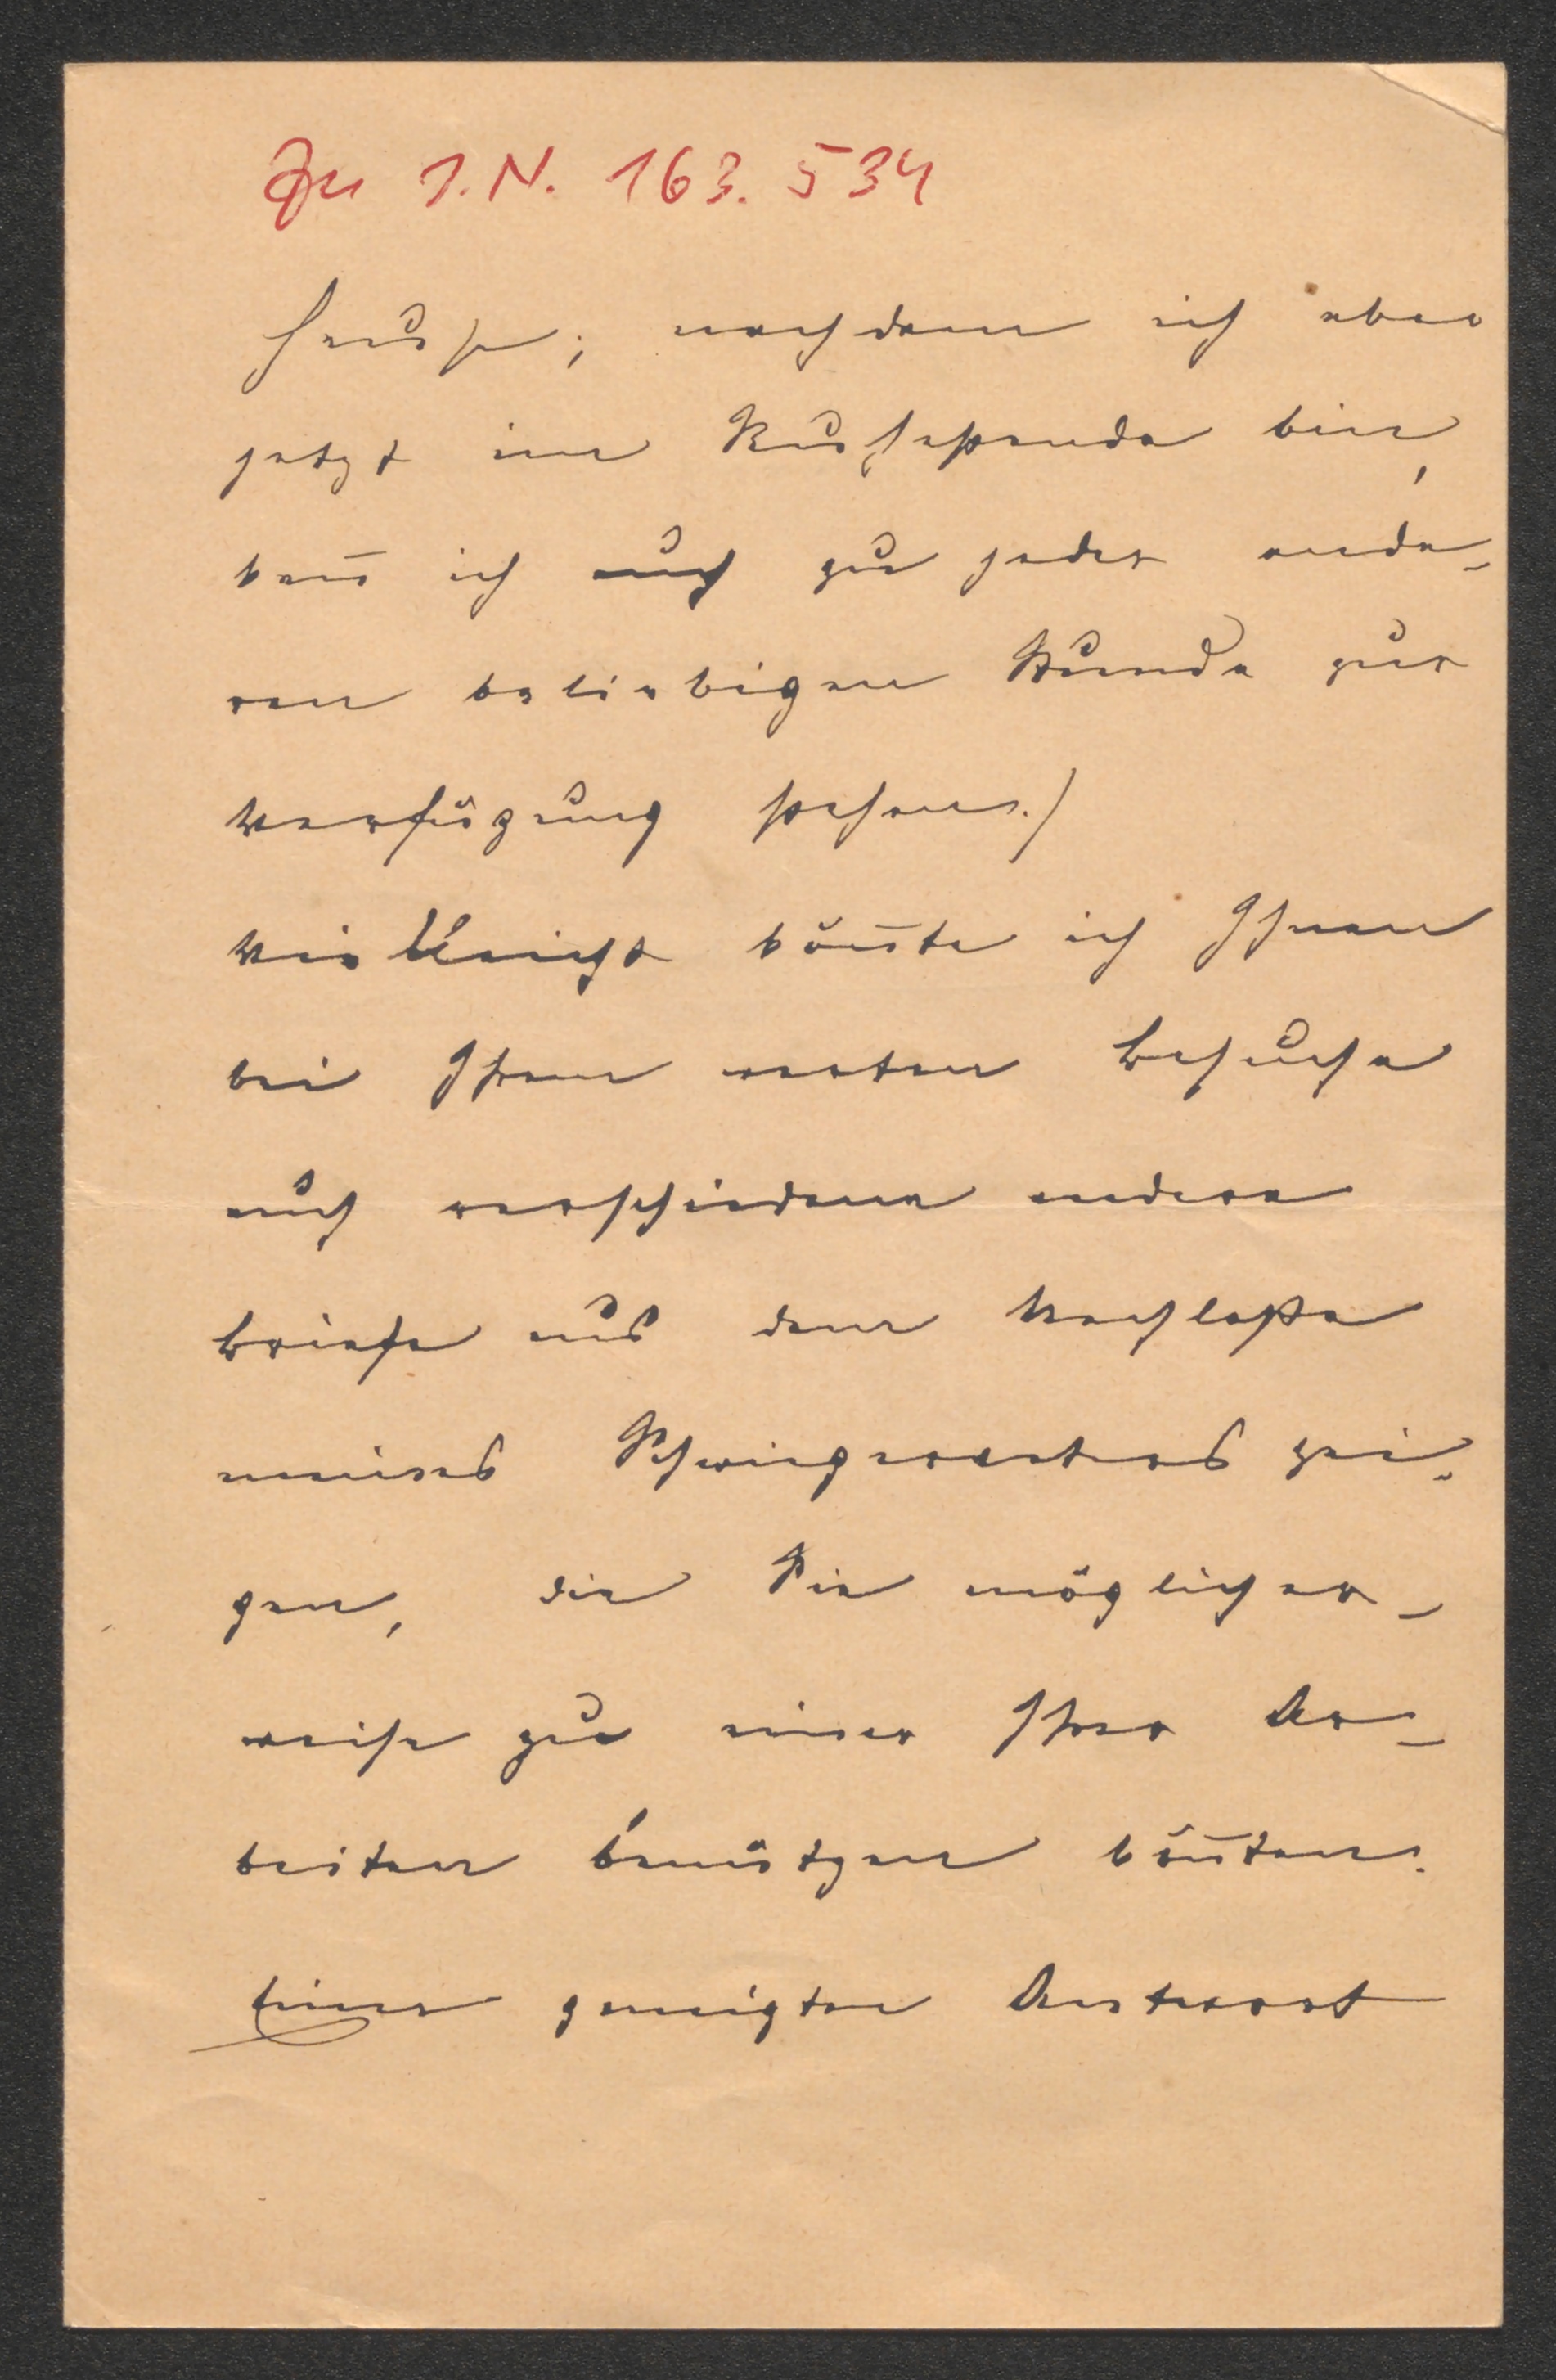 Zu I.N. 163.534
Hause; nachdem ich aber
jetzt im Ruhestande bin,
kan̄ ich auch zu jeder ande-
ren beliebigen Stunde zur
Verfügung stehen.)
Vielleicht kön̄te ich Ihnen
bei Ihrem werten Besuche
auch verschiedene andere
Briefe aus dem Nachlaße
meines Schwiegervaters zei-
gen, die Sie möglicher-
weise zu einer Ihrer Ar-
beiten benützen kön̄ten.
Einer geneigten Antwort